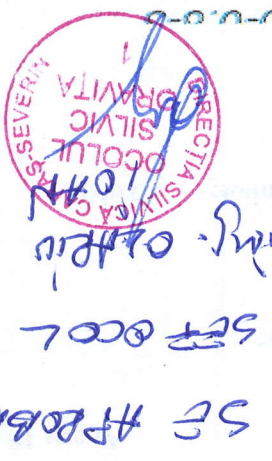 SE APROB
SEF OCOL
ing.
IOAN
DIRECTIA SILVICA CARAS-SEVERIN
OCOLUL
SILVIC
ORAVITA
1